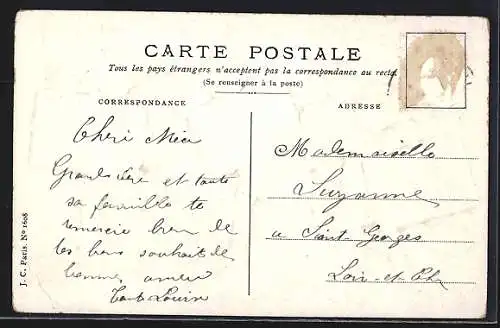 CARTE POSTALE
Tous les pays étrangers n'acceptent pas la correspondance au recto.
(Se renseigner à la poste)
CORRESPONDANCE
ADRESSE
Cheri
et toute
sa famille te
remercie bien de
tes bons souhait de
bonne
Louise
Mademoiselle
Suzanne
a Saint-Georges
Loir-et-Ch
J. C. Paris. N° 1608